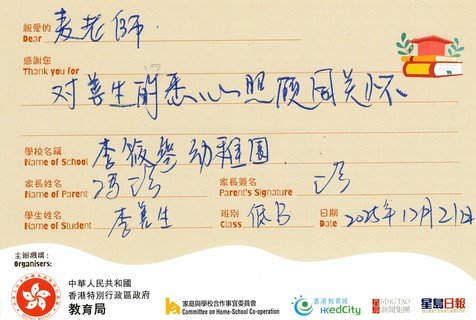 親愛的 麦老师
Dear
感謝您
Thank you for
对善生的悉心照顾同关怀
學校名稱 李筱舉幼稚園
Name of School
家長姓名 家長簽名
Name of Parent Parent's Signature
學生姓名 李善生 班別 低B 日期 2025年12月21日
Name of Student Class Date
主辦機構:
Organisers:
中華人民共和國
香港特別行政區政府
教育局
家庭與學校合作事宜委員會
Committee on Home-School Co-operation
香港教育城
HKedCity
星島 SING TAO
新聞集團
星島日報